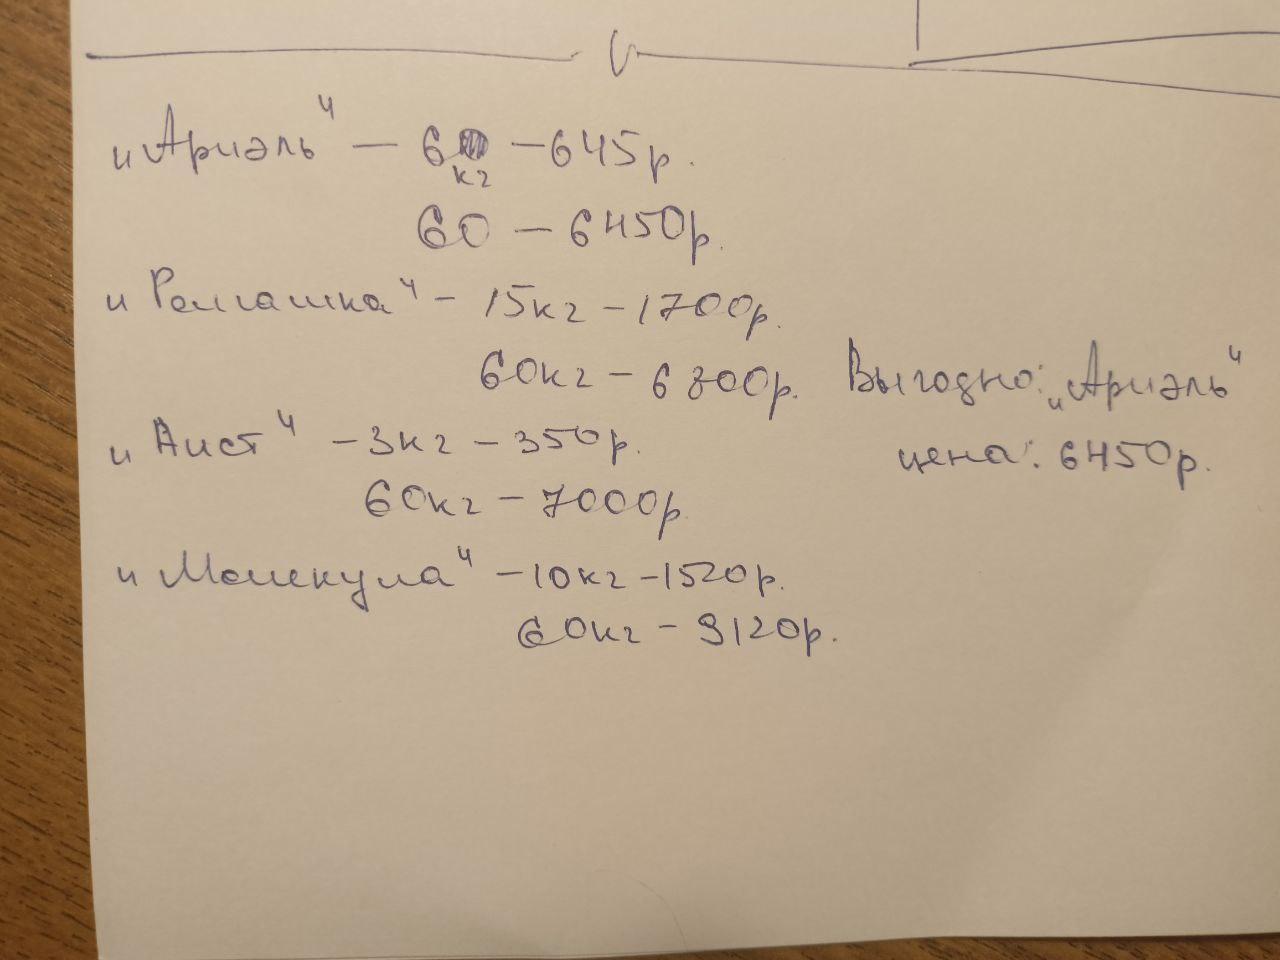 „Ариэль“ — 6 кг — 645р.
60 — 6450р.
„Ромашка“ — 15кг — 1700р.
60кг — 6800р.
„Аист“ — 3кг — 350р.
60кг — 7000р.
„Молекула“ — 10кг — 1520р.
60кг — 9120р.
Выгодно: „Ариэль“
цена: 6450р.